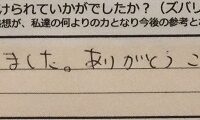 けられていかがでしたか？（ズバリ
感想が、私達の何よりの力となり今後の参考と
ました。ありがとうこ